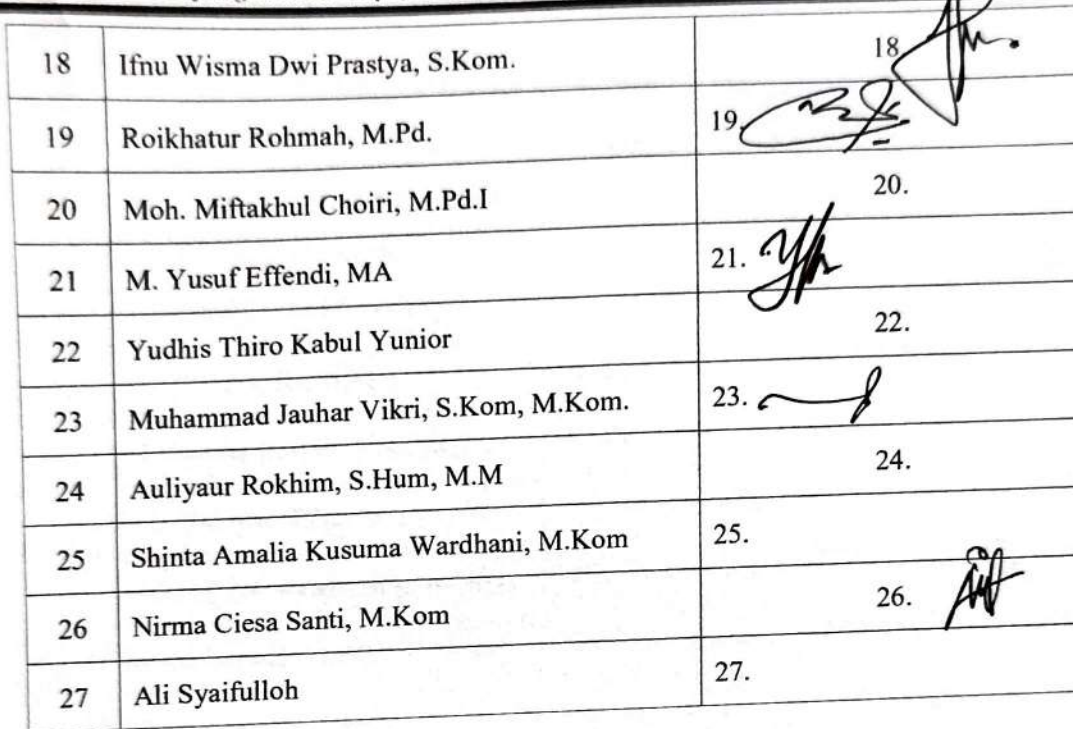 18 Ifnu Wisma Dwi Prastya, S.Kom. 18
19 Roikhatur Rohmah, M.Pd. 19.
20 Moh. Miftakhul Choiri, M.Pd.I 20.
21 M. Yusuf Effendi, MA 21.
22 Yudhis Thiro Kabul Yunior 22.
23 Muhammad Jauhar Vikri, S.Kom, M.Kom. 23.
24 Auliyaur Rokhim, S.Hum, M.M 24.
25 Shinta Amalia Kusuma Wardhani, M.Kom 25.
26 Nirma Ciesa Santi, M.Kom 26.
27 Ali Syaifulloh 27.